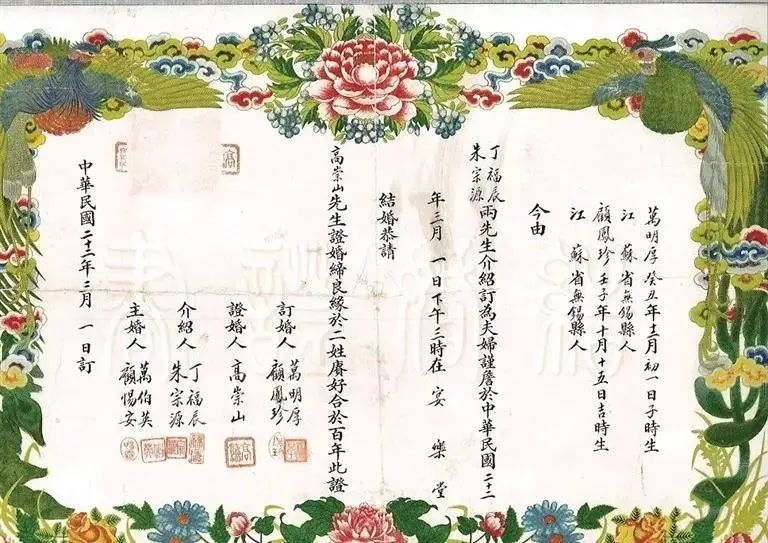 萬明厚癸丑年十二月初一日子時生
江蘇省無錫縣人
顧鳳珍壬子年十月十五日吉時生
江蘇省無錫縣人
今由
丁福辰
朱宗源
兩先生介紹訂為夫婦謹詹於中華民國二十二
年三月一日下午三時在宴樂堂
結婚恭請
高崇山先生證婚締良緣於二姓賡好合於百年此證
訂婚人
萬明厚
顧鳳珍
證婚人
高崇山
介紹人
丁福辰
朱宗源
主婚人
萬伯英
顧惕安
中華民國二十二年三月一日訂